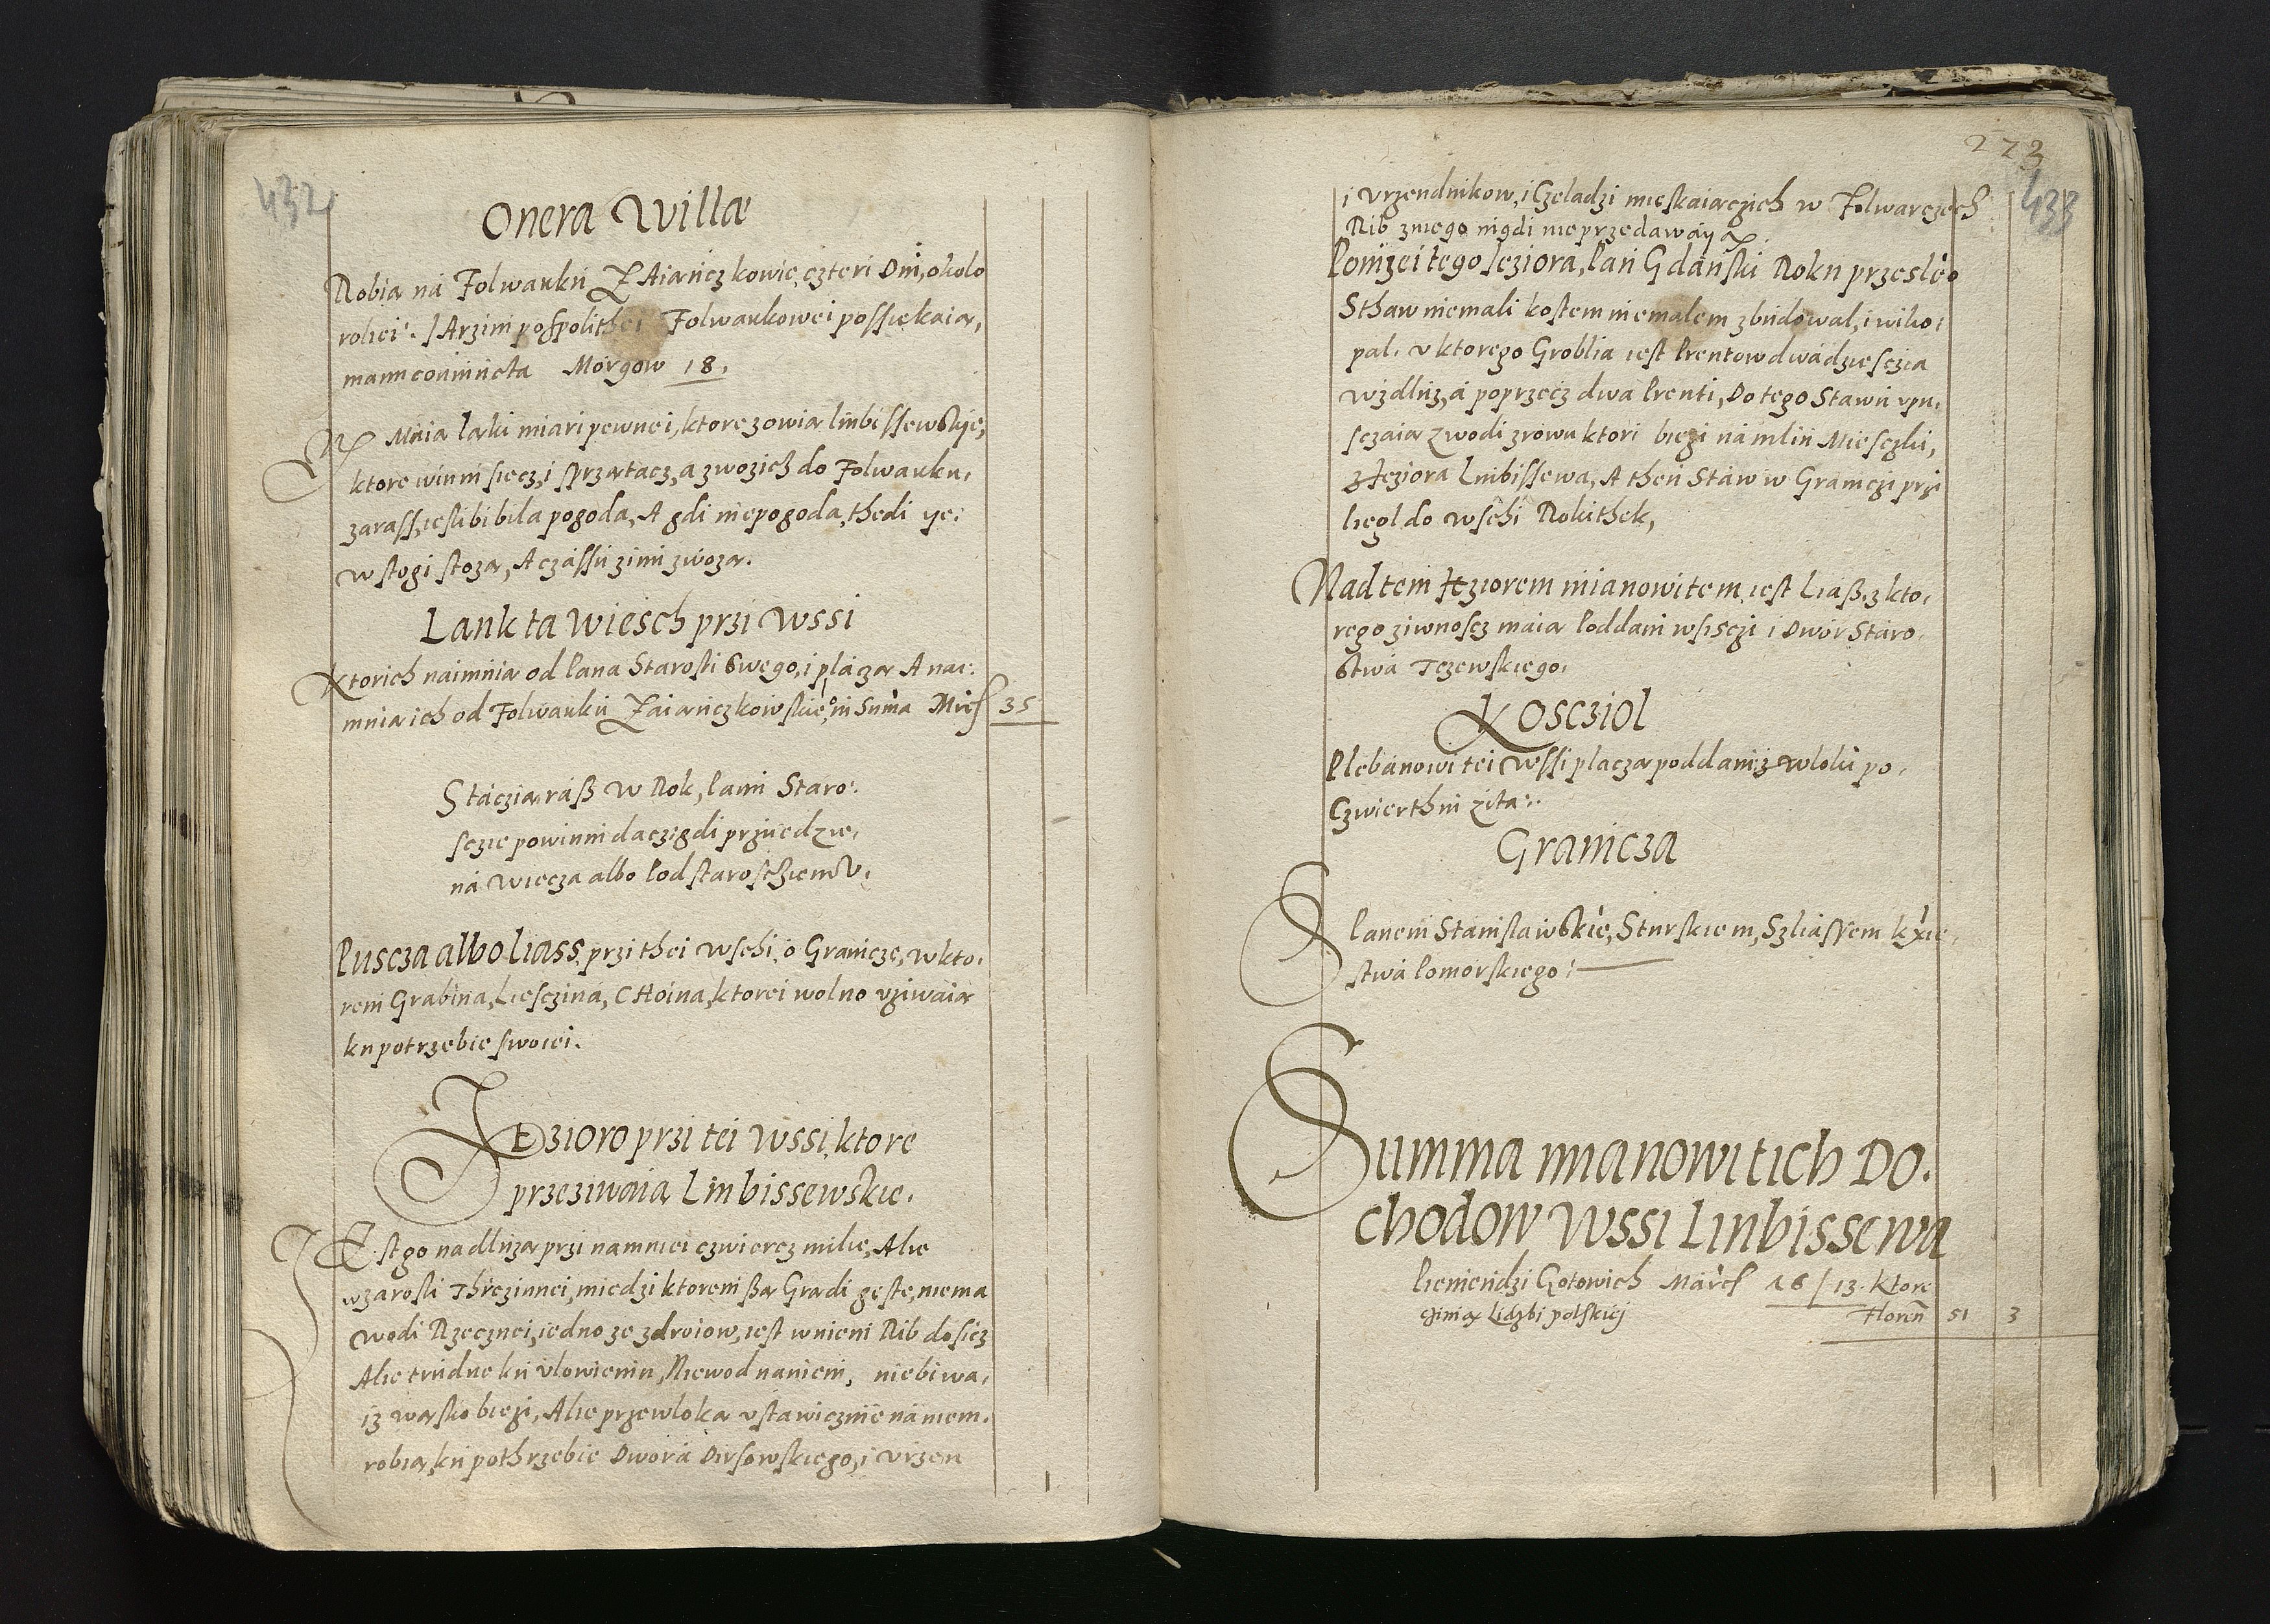 432
Onera Willæ
Robią ná Folwarku ZAiańczkowie, czteri Dni, około
rolieı: JArzini pospolithei Folwarkowei possiekaią,
manu coniuncta Morgow 18.
Maią ląki miari pewnei, ktore zowią linbissewskije,
ktore winni siecz, i sprzątacz, a zwozich do Folwarku,
zarass, iesli bi bila pogoda, A gdi niepogoda, thedi ye:
w stogi stozą, A czássu zimi zwozą.
Lank ta Wiesch przi Wssi
Ktorich náimnią od Pana Starosti Swego, i placzą A nai:
mnią ich od Folwarku Zaiańczkowskie°, in Sum̃a Mrc 35
Stáczią ráß w Rok, Panu Staro:
sczie powinni dacz, gdi przijedzie,
ná Wiecza albo Podstarosthiemu.
Puscza albo Liass, przi thei wsehi, o Granicze, w kto,
rem Grabina, Liesczina, CHoina, ktorei wolno vziwaią
ku potrzebie swoiei.
JEzioro przi tei Wssi, ktore
przeziwaią Linbissewskie.
JEst go na dlużą przi namniei czwiercz milie, Alie
wzarosli Thrczinnei, miedzi ktorem ßą Grądi gęste, niema
wodi Rzecznei, iedno ze zdroiow, iest w niem Rib dosicz
Alie trudne ku vlowieniu, Niewod naniem, niebiwa,
iz wąsko biezi, Alie przewloka vstawicznie ná niem.
robią, ku pothrzebie Dworá Dirsowskiego, i Vrzen
273
433
i Vrzendnikow, i Czeladzi mieskaiączich w Folwarczech
Rib zniego nigdi nie przedawáyą.
Ponizei tego Jeziora, Pan Gdáński Roku przeslèo
Sthaw niemali kostem niemalem zbudowal, i wiko,
pal. v ktorego Groblia iest Prentow dwádziesczia
wzdluz, á poprzecz dwa Prenti, Do tego Stawu vpu,
sczaią Zwodi zrowu ktori biezi ná mlin Miesczki,
z Jeziora Linbissewa, A then Staw w Graniczi przi
liegl do wsehi Rokithek,
Nad tem Jeziorem mianowitem, iest Liaß, z kto,
rego ziwnoscz máią Poddani wsisczi i Dwór Stáro,
stwá Tczewskiego.
Kosczioł
Plebánowi tei Wssi placzą poddani z wloki po,
Czwierthni zita:.
Granicza
S Panem Stanisławskiè, Sturskiem, Szliassem kxiè,
stwá Pomorskiego:
Summa mianowitich Do.
chodow Wssi Linbissewa
Pieniendzi Gotowich Márcs 18/13. ktore
czinią Lidzbi polskiej Floren̄ 51 3